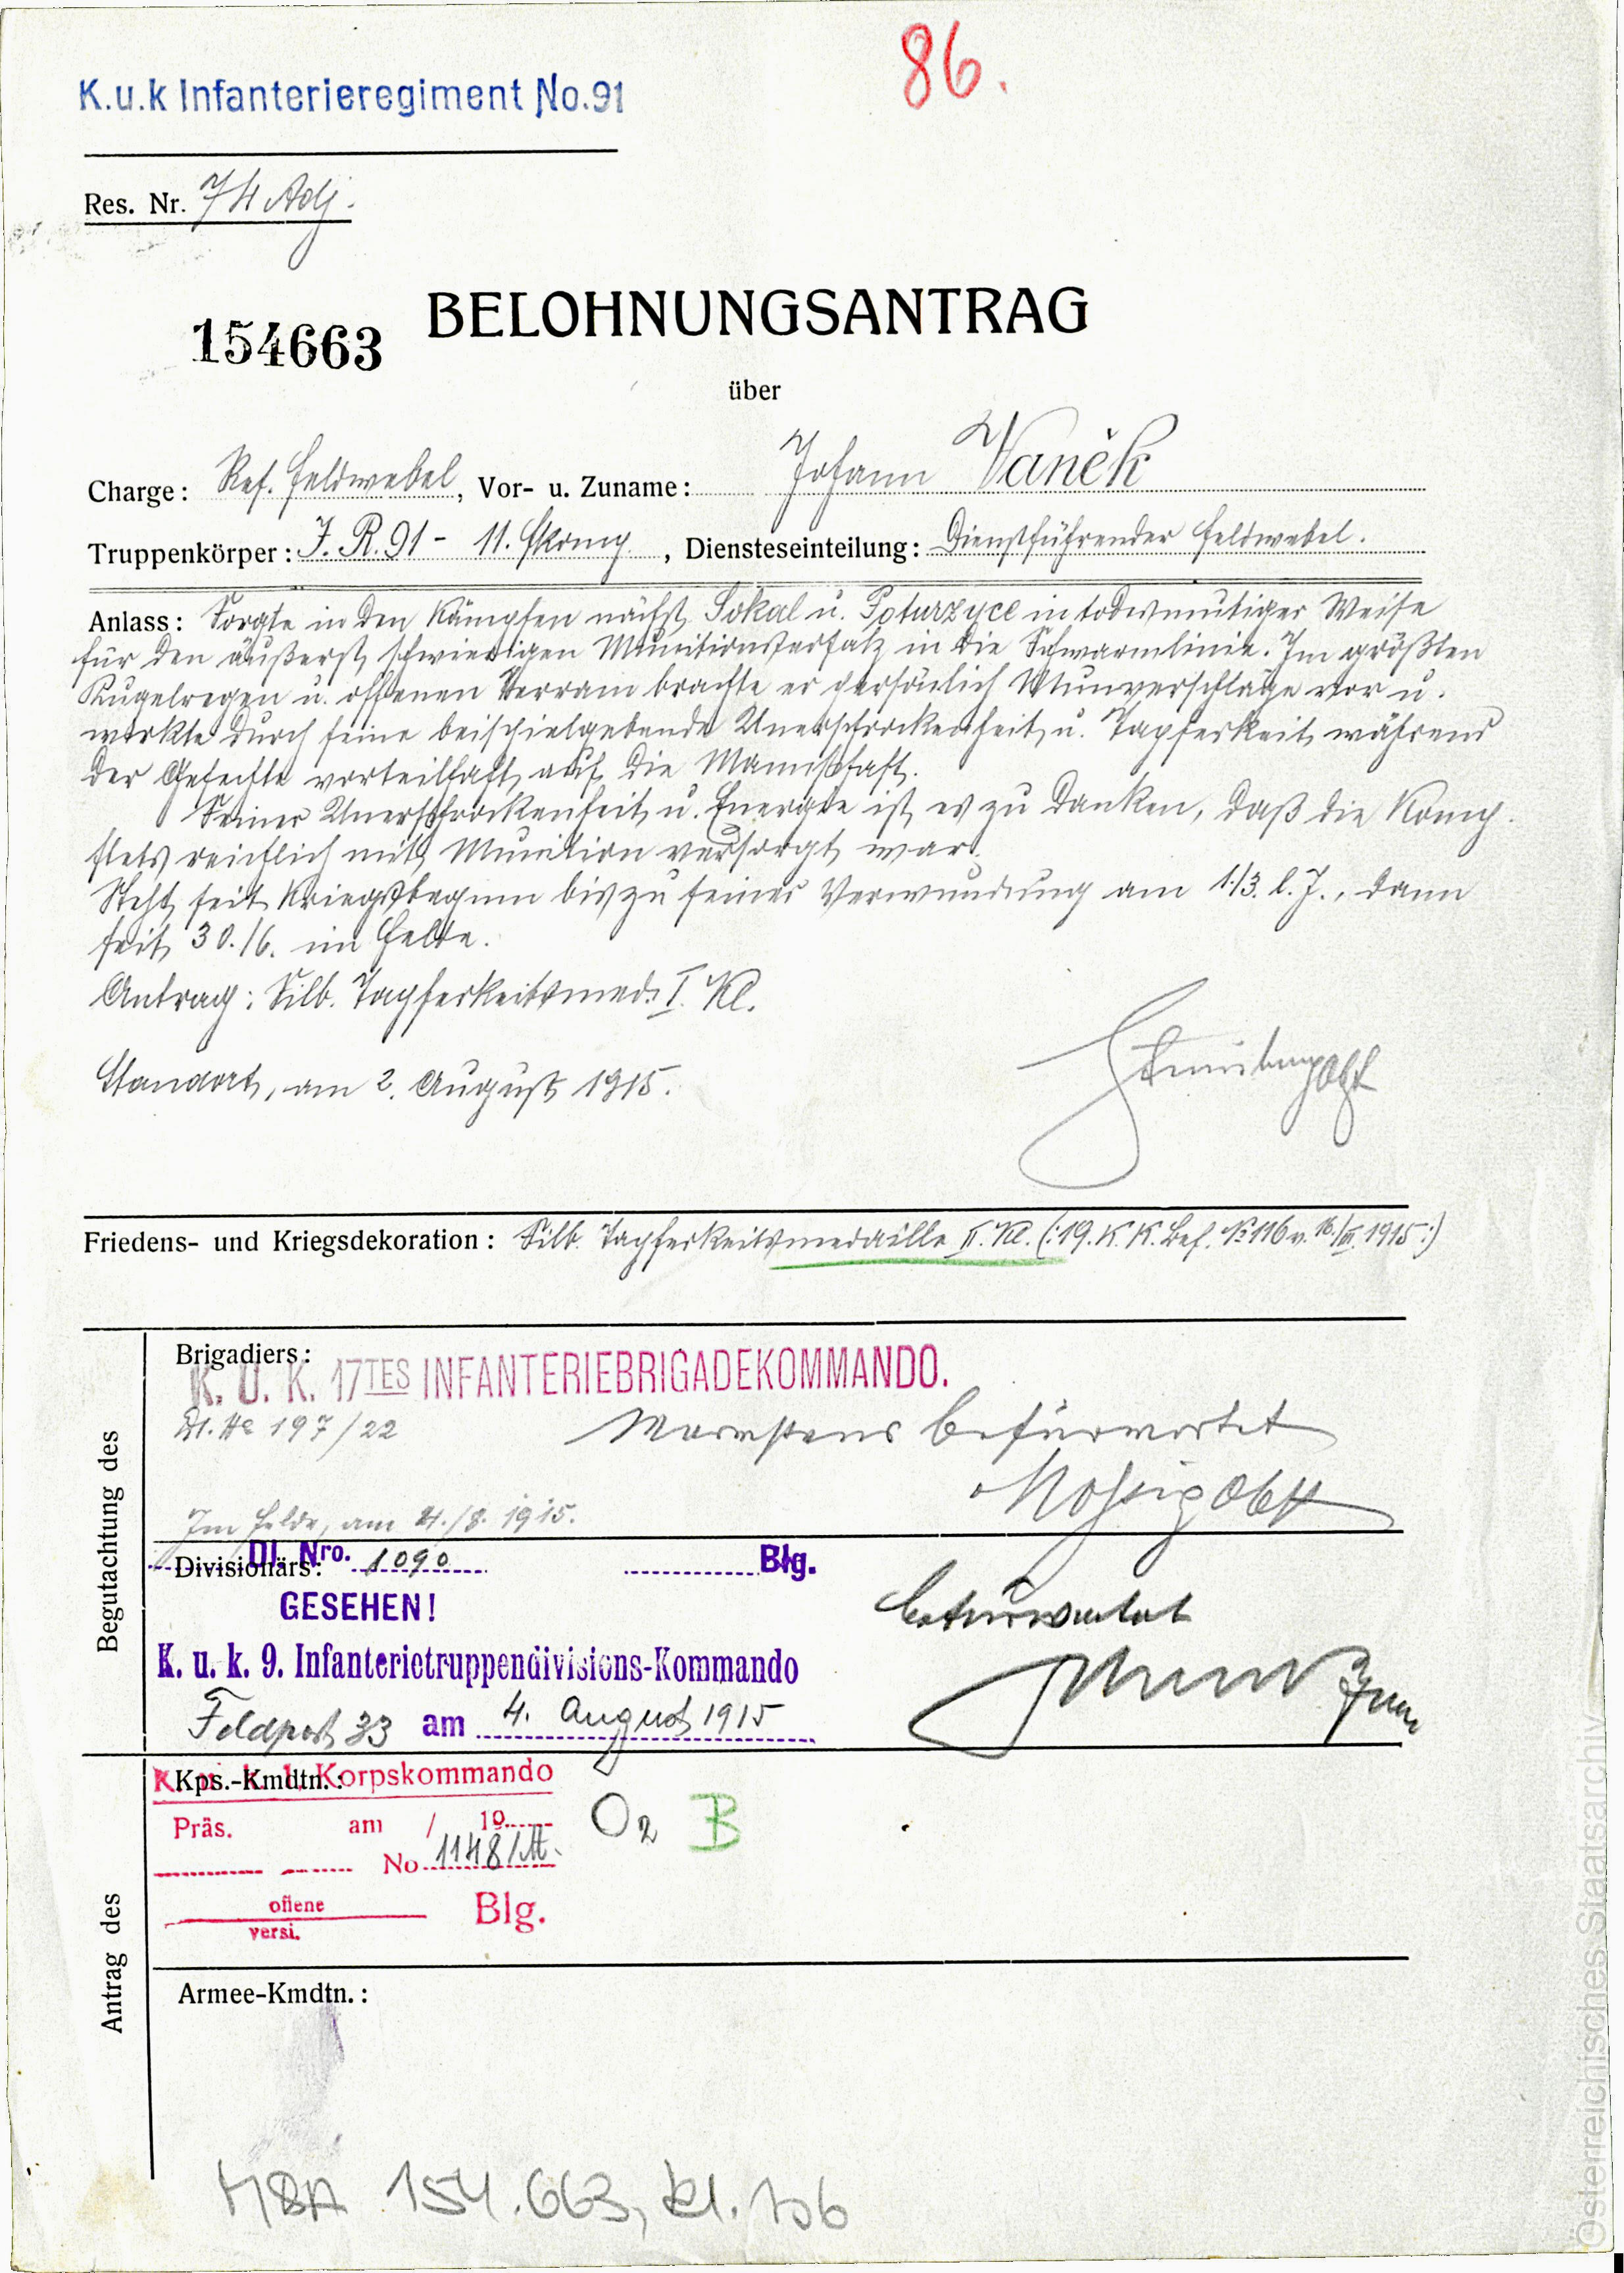 86.
K.u.k Infanterieregiment No.91
Res. Nr. 74 Adj.
154663
BELOHNUNGSANTRAG
über
Charge: Res. Feldwebel, Vor- u. Zuname: Johann Vaněk
Truppenkörper: I. R. 91 - 11. Fkomp., Diensteseinteilung: Dienstführender Feldwebel.
Anlass: Sorgte in den Kämpfen nächst Sokal u. Poturzyce in todesmutiger Weise
für den äußerst schwierigen Munitionsersatz in die Schwarmlinie. Im größten
Kugelregen u. offenen Terrain brachte er persönlich Munverschläge vor u.
wirkte durch seine beispielgebende Unerschrockenheit u. Tapferkeit während
der Gefechte vorteilhaft auf die Mannschaft.
Seiner Unerschrockenheit u. Energie ist es zu danken, daß die Komp.
stets reichlich mit Munition versorgt war.
Steht seit Kriegsbeginn bis zu seiner Verwundung am 1./3. l. J., dann
seit 30./6. im Felde.
Antrag: Silb. Tapferkeitsmed. I. Kl.
Standort, am 2. August 1915.
Friedens- und Kriegsdekoration: Silb. Tapferkeitsmedaille II. Kl. (:19. K. K. Bef. No 116 v. 1915:)
Begutachtung des
Brigadiers:
K. U. K. 17TES INFANTERIEBRIGADEKOMMANDO.
197/22 Wärmstens befürwortet
Mossig Obst
Im Felde, am 4./8. 1915.
Divisionärs:
Dl. Nro. 1090 Blg.
GESEHEN! befürwortet
K. u. k. 9. Infanterietruppendivisions-Kommando
Feldpost 33 am 4. August 1915
Antrag des
Kps.-Kmdtn.:
Korpskommando
Präs. am / 19
No 1148/
offene
versi.
Blg.
B
Armee-Kmdtn.:
MBA 154.663, Kt. 106
Österreichisches Staatsarchiv